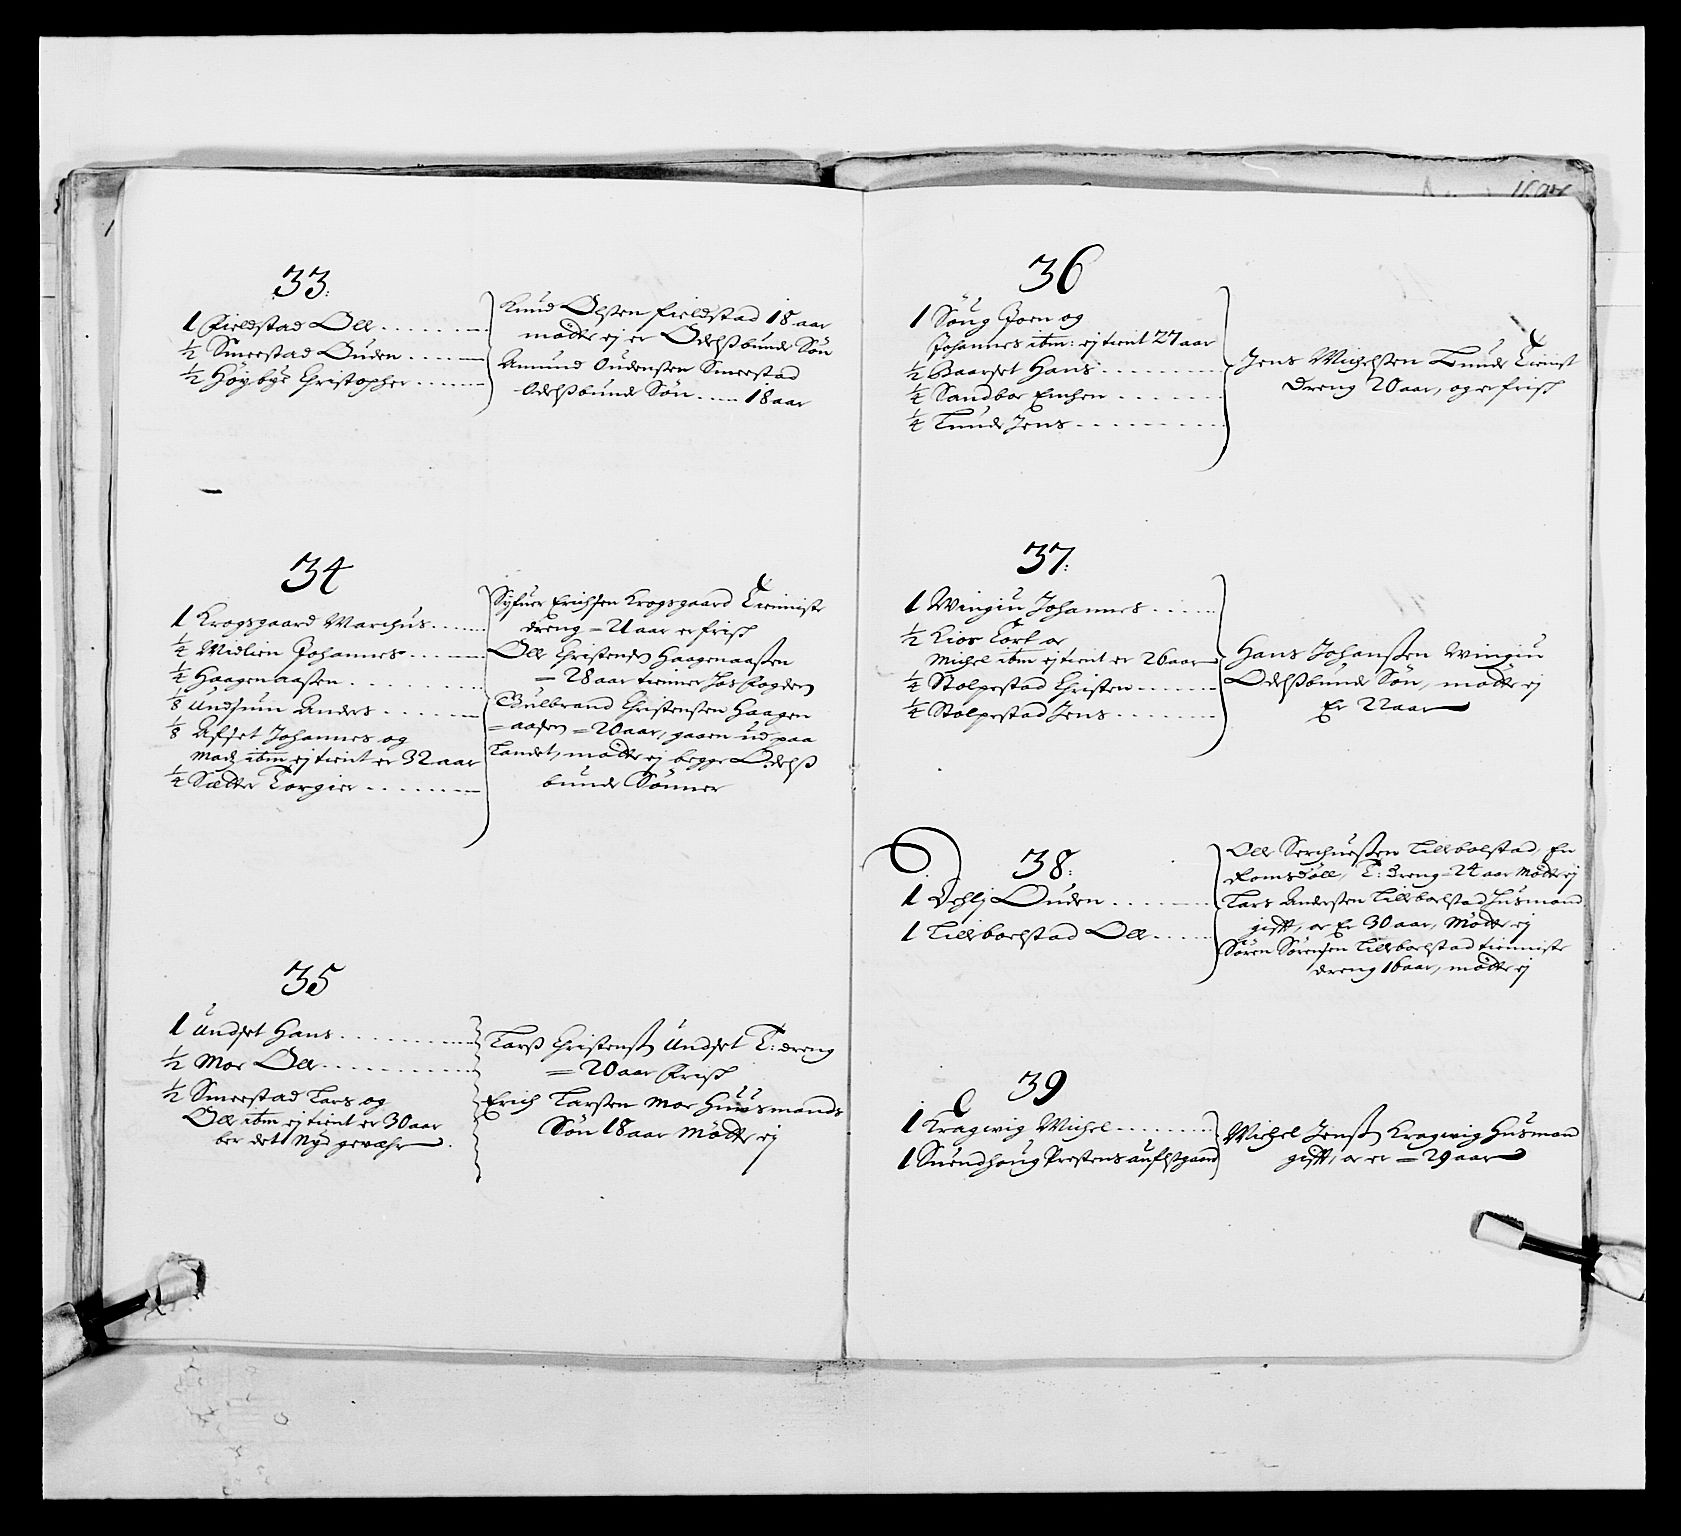 33.
1 Fieldstad Oll
½ Smeestad Ouden
½ Høybye Christopher
Knud Olsen Fieldstad 18 aar
mødte ej er Odelsbunde Søn
Amund Oudensen Smeestad
Odelsbunde Søn 18 aar
34
1 Krogsgaard Marchus
¼ Midlien Johannes
¼ Haagenaassen
⅛ Undsum Anders
⅛ Afset Johannes og
Mads itm ej tient er 32 aar
¼ Sætter Torgier
Syfuer Erichsen Krogsgaard Tienniste
dreng = 21 aar er frisch
Oll Christens Haagenaassen
= 28 aar tienner hos fogden
Gulbrand Christensen Haagen
= aasen = 20 aar, gaaen ud paa
Landet, mødte ej begge Odelsz
bunde Sønner
35
1 Undset Hans
½ Moe Oll
½ Smeestad Lars og
Oll itm ej tient er 30 aar
ber det Nyd gevæhr
Larss Christenss Undset T: dreng
= 20 aar frisch
Erich Larsen Moe Huusmands
Søn 18 aar Mødte ej
36
1 Søug Joen og
Johannes itm: ej tient 27 aar
½ Baarset Hans
¼ Sandboe Emhen
¼ Lunde Jens
Jens Michelsen Lunde Tienist
dreng 20 aar, og er frisch
37.
1 Wingiu Johannes
½ Lios Torf or
Michel itm ej tient er 26 aar
¼ Stolpestad Christen
¼ Stolpestad Jens
Hans Johanssen Wingiu
Odelsbunde Søn, mødte ej
Er 22 aar
38.
1 Dehlj Ouden
1 Lilleboelstad Oll
Oll Serchuessen Lilleboelstad En
Romsdøll, T: dreng = 24 aar Mødte ej
Lars Andersen Lilleboelstad Husmand
gifft, or Er 30 aar, Mødte ej
Søren Sørensen Lilleboelstad tienniste
dreng 16 aar, mødte ej
39
1 Kragwig Michel
1 Suendhoug Prestens aufelsgaard
Michel Jenss Kragwig Husmand
gifft, or er = 29 aar